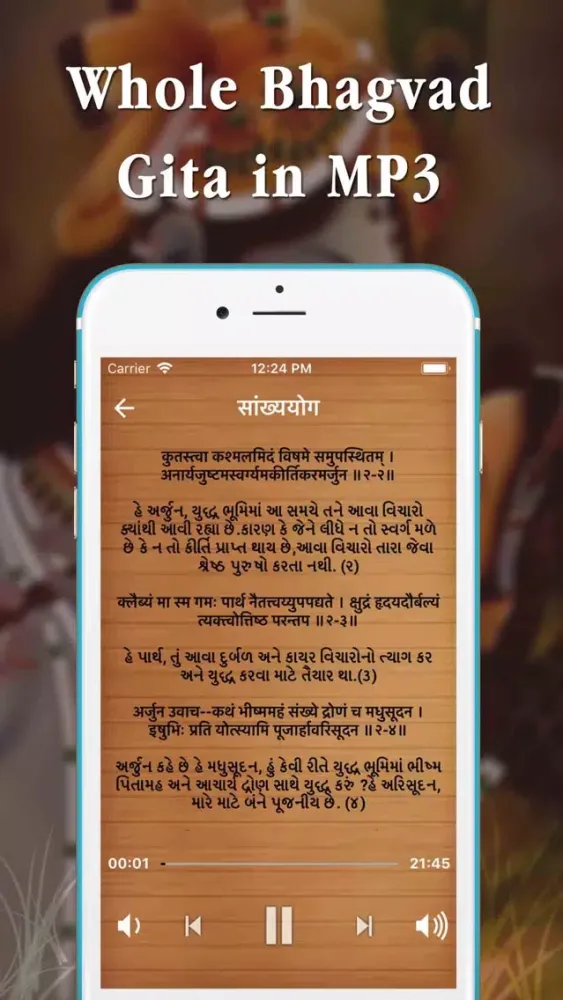 Whole Bhagvad
Gita in MP3
Carrier
12:24 PM
सांख्ययोग
कुतस्त्वा कश्मलमिदं विषमे समुपस्थितम् ।
अनार्यजुष्टमस्वर्ग्यमकीर्तिकरमर्जुन ॥२-२॥
હે અર્જુન, યુદ્ધ ભૂમિમાં આ સમયે તને આવા વિચારો
ક્યાંથી આવી રહ્યા છે.કારણ કે જેને લીધે ન તો સ્વર્ગ મળે
છે કે ન તો કીર્તિ પ્રાપ્ત થાય છે,આવા વિચારો તારા જેવા
શ્રેષ્ઠ પુરુષો કરતા નથી. (૨)
क्लैब्यं मा स्म गमः पार्थ नैतत्त्वय्युपपद्यते । क्षुद्रं हृदयदौर्बल्यं
त्यक्त्वोत्तिष्ठ परन्तप ॥२-३॥
હે પાર્થ, તું આવા દુર્બળ અને કાયર વિચારોનો ત્યાગ કર
અને યુદ્ધ કરવા માટે તૈયાર થા.(૩)
अर्जुन उवाच--कथं भीष्ममहं संख्ये द्रोणं च मधुसूदन ।
इषुभिः प्रति योत्स्यामि पूजार्हावरिसूदन ॥२-४॥
અર્જુન કહે છે હે મધુસૂદન, હું કેવી રીતે યુદ્ધ ભૂમિમાં ભીષ્મ
પિતામહ અને આચાર્ય દ્રોણ સાથે યુદ્ધ કરું ?હે અરિસૂદન,
મારે માટે બંને પૂજનીય છે. (૪)
00:01
21:45